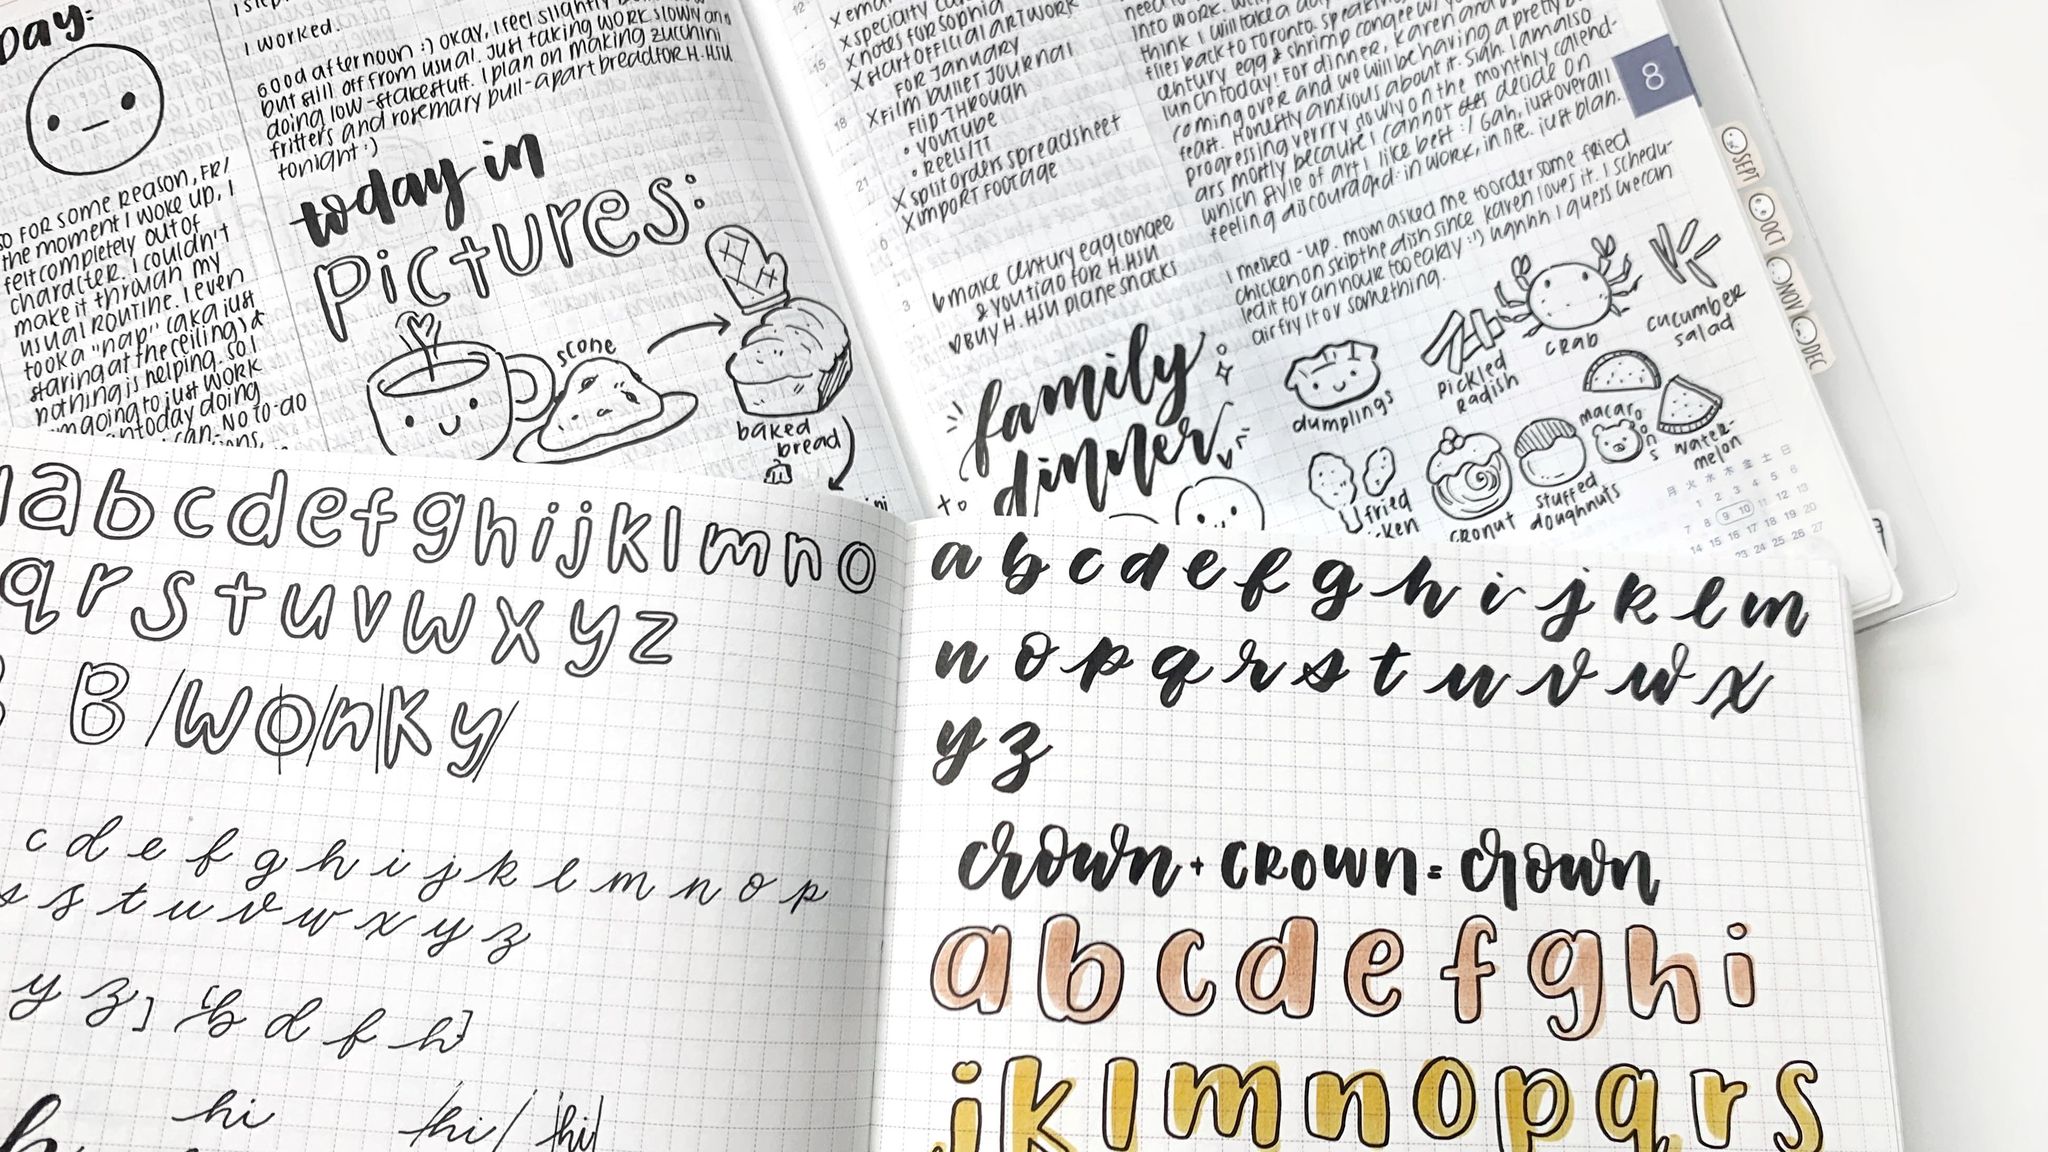 Day:
I worked.
Good afternoon :) okay, I feel slightly
but still off from usual. Just taking work slowly and
doing low-stake stuff. I plan on making zucchini
fritters and rosemary pull-apart bread for H. HSU
tonight :)
So for some reason, FRI
the moment I woke up, I
felt completely out of
character. I couldn't
make it through my
usual routine. I even
took a "nap" (aka just
staring at the ceiling) &
nothing is helping. So I
am going to just work
today doing
can. No to-do
today in
pictures:
scone
baked
bread
X specialty
X notes for Sophia
X start official artwork
for January
X film bullet journal
flip-through
• YouTube
• Reels/TT
X split orders spreadsheet
X import footage
make century egg congee
& youtiao for H. HSU
buy H. HSU plane snacks
into work.
think I will take a day
flies back to Toronto. Speaking
century egg & shrimp congee w/
lunch today! For dinner, Karen and
coming over and we will be having a pretty
feast. Honestly anxious about it. Sigh. I am also
progressing verrry slowly on the monthly calend-
ars mostly because I cannot decide on
which style of art I like best :/ Gah, just overall
feeling discouraged: in work, in life. Just plan.
I messed-up. Mom asked me to order some fried
chicken or skip the dish since Karen loves it. I schedu-
led it for an hour too early :') ughhh I guess we can
air fry it or something.
8
SEPT
OCT
NOV
DEC
family
dinner
dumplings
pickled
radish
crab
cucumber
salad
fried
cronut
stuffed
doughnuts
macarons
water-
melon
月 火 水 木 金 土 日
1 2 3 4 5 6
7 8 9 10 11 12 13
14 15 16 17 18 19 20
23 24 25 26 27
a b c d e f g h i j k l m n o
q r s t u v w x y z
B /w o/n/k y/
c d e f g h i j k l m n o p
s s t u v w x y z
y z] [b d f h]
hi /hi/ /hi/
a b c d e f g h i j k l m
n o p q r s t u v w x
y z
crown + crown = crown
a b c d e f g h i
j k l m n o p q r s